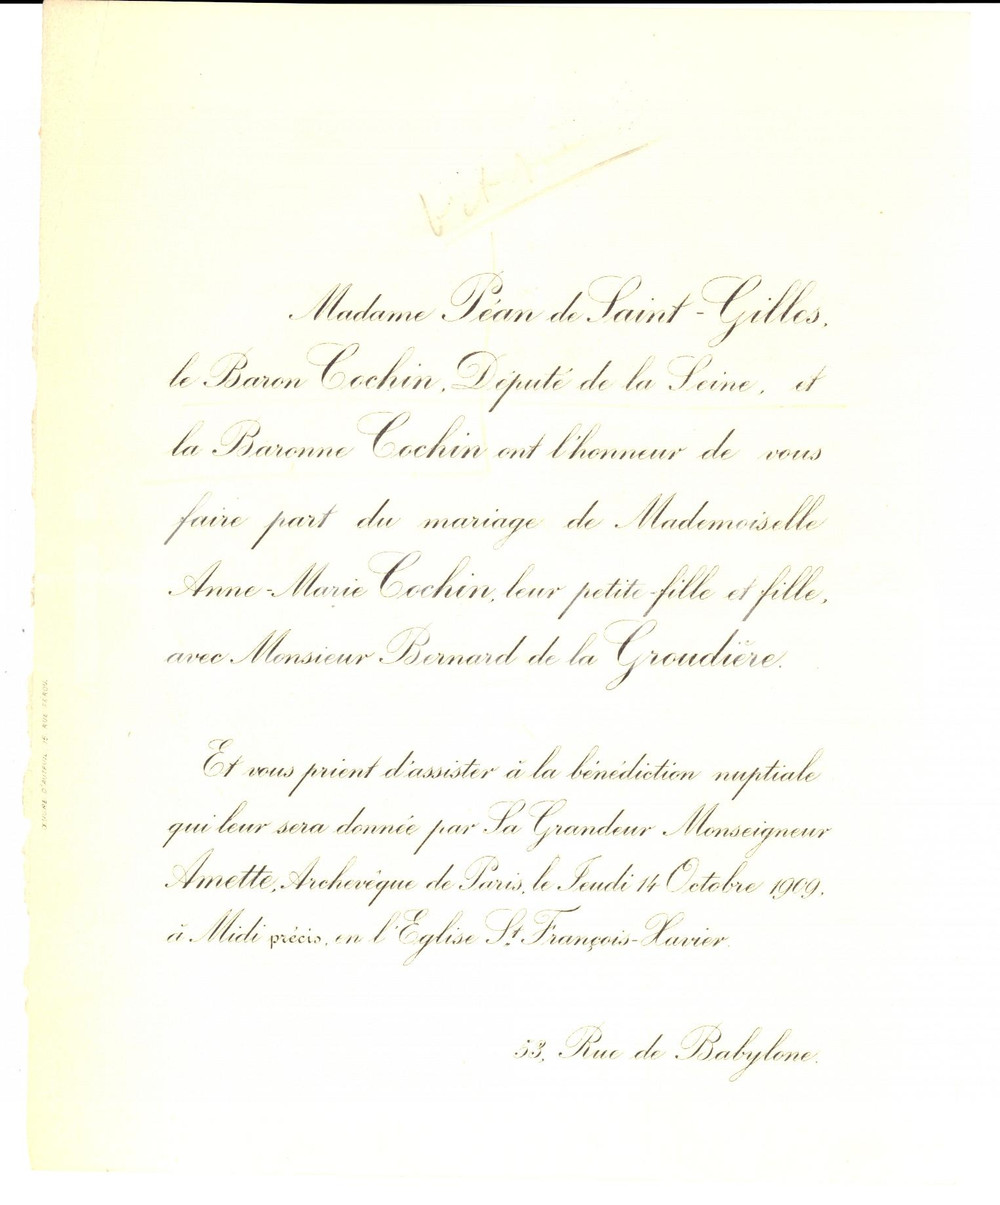 Madame Péan de Saint-Gilles,
le Baron Cochin, Député de la Seine, et
la Baronne Cochin ont l'honneur de vous
faire part du mariage de Mademoiselle
Anne-Marie Cochin, leur petite-fille et fille,
avec Monsieur Bernard de la Groudière.
Et vous prient d'assister à la bénédiction nuptiale
qui leur sera donnée par Sa Grandeur Monseigneur
Amette, Archevêque de Paris, le Jeudi 14 Octobre 1909,
à Midi précis, en l'Eglise St François-Xavier.
53, Rue de Babylone.